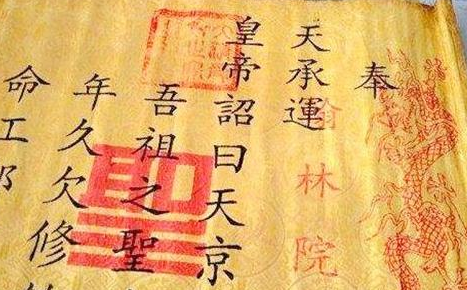 奉
天承運
皇帝詔曰天京
吾祖之聖
年久欠修
命工部
翰林院